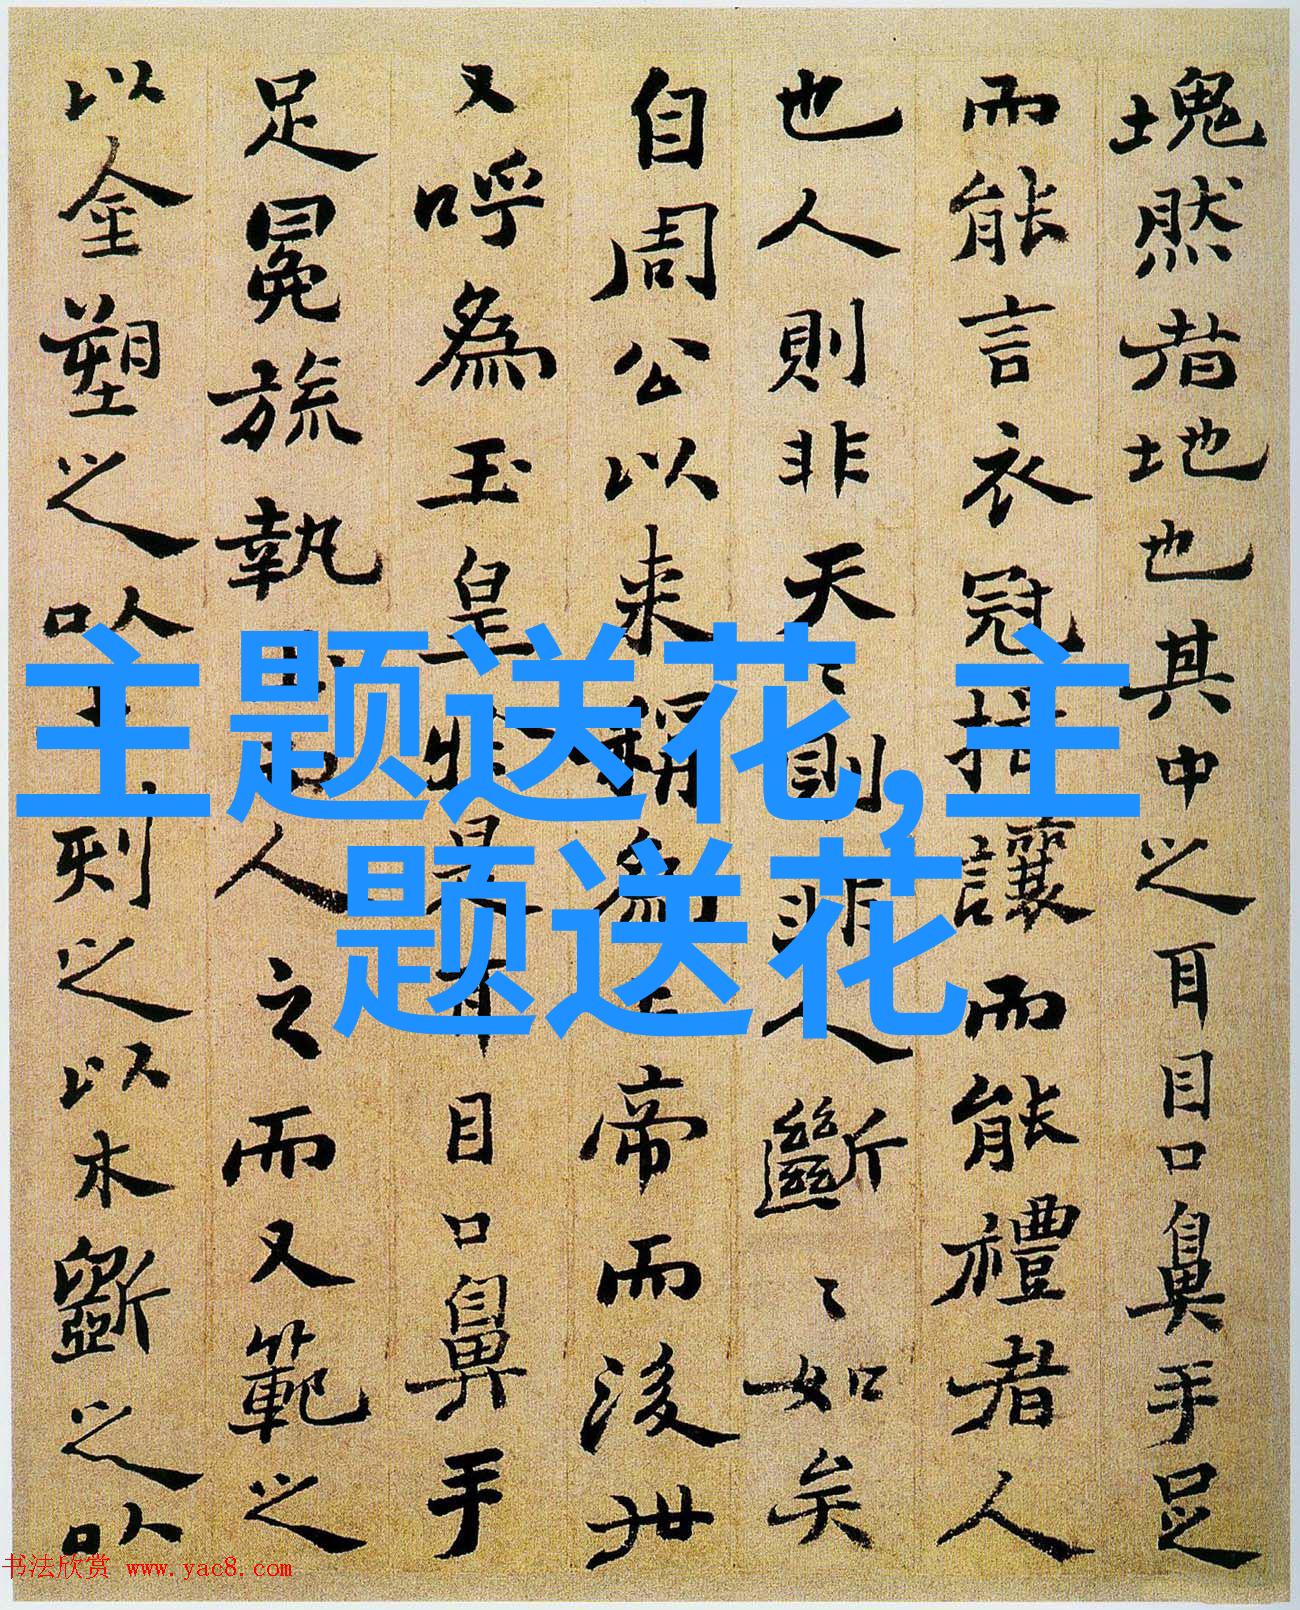 塊然者地也其中之耳目口鼻手足
而能言衣冠揖讓而能禮者人
也人則非天〻則非人斷〻如矣
自周公以来稱為上帝而後世
又呼為玉皇於是耳目口鼻手
足冕旒執人之而又範之
以金塑之以土刻之以木斲之以
主题送花,主
题送花
书法欣赏 www.yac8.com